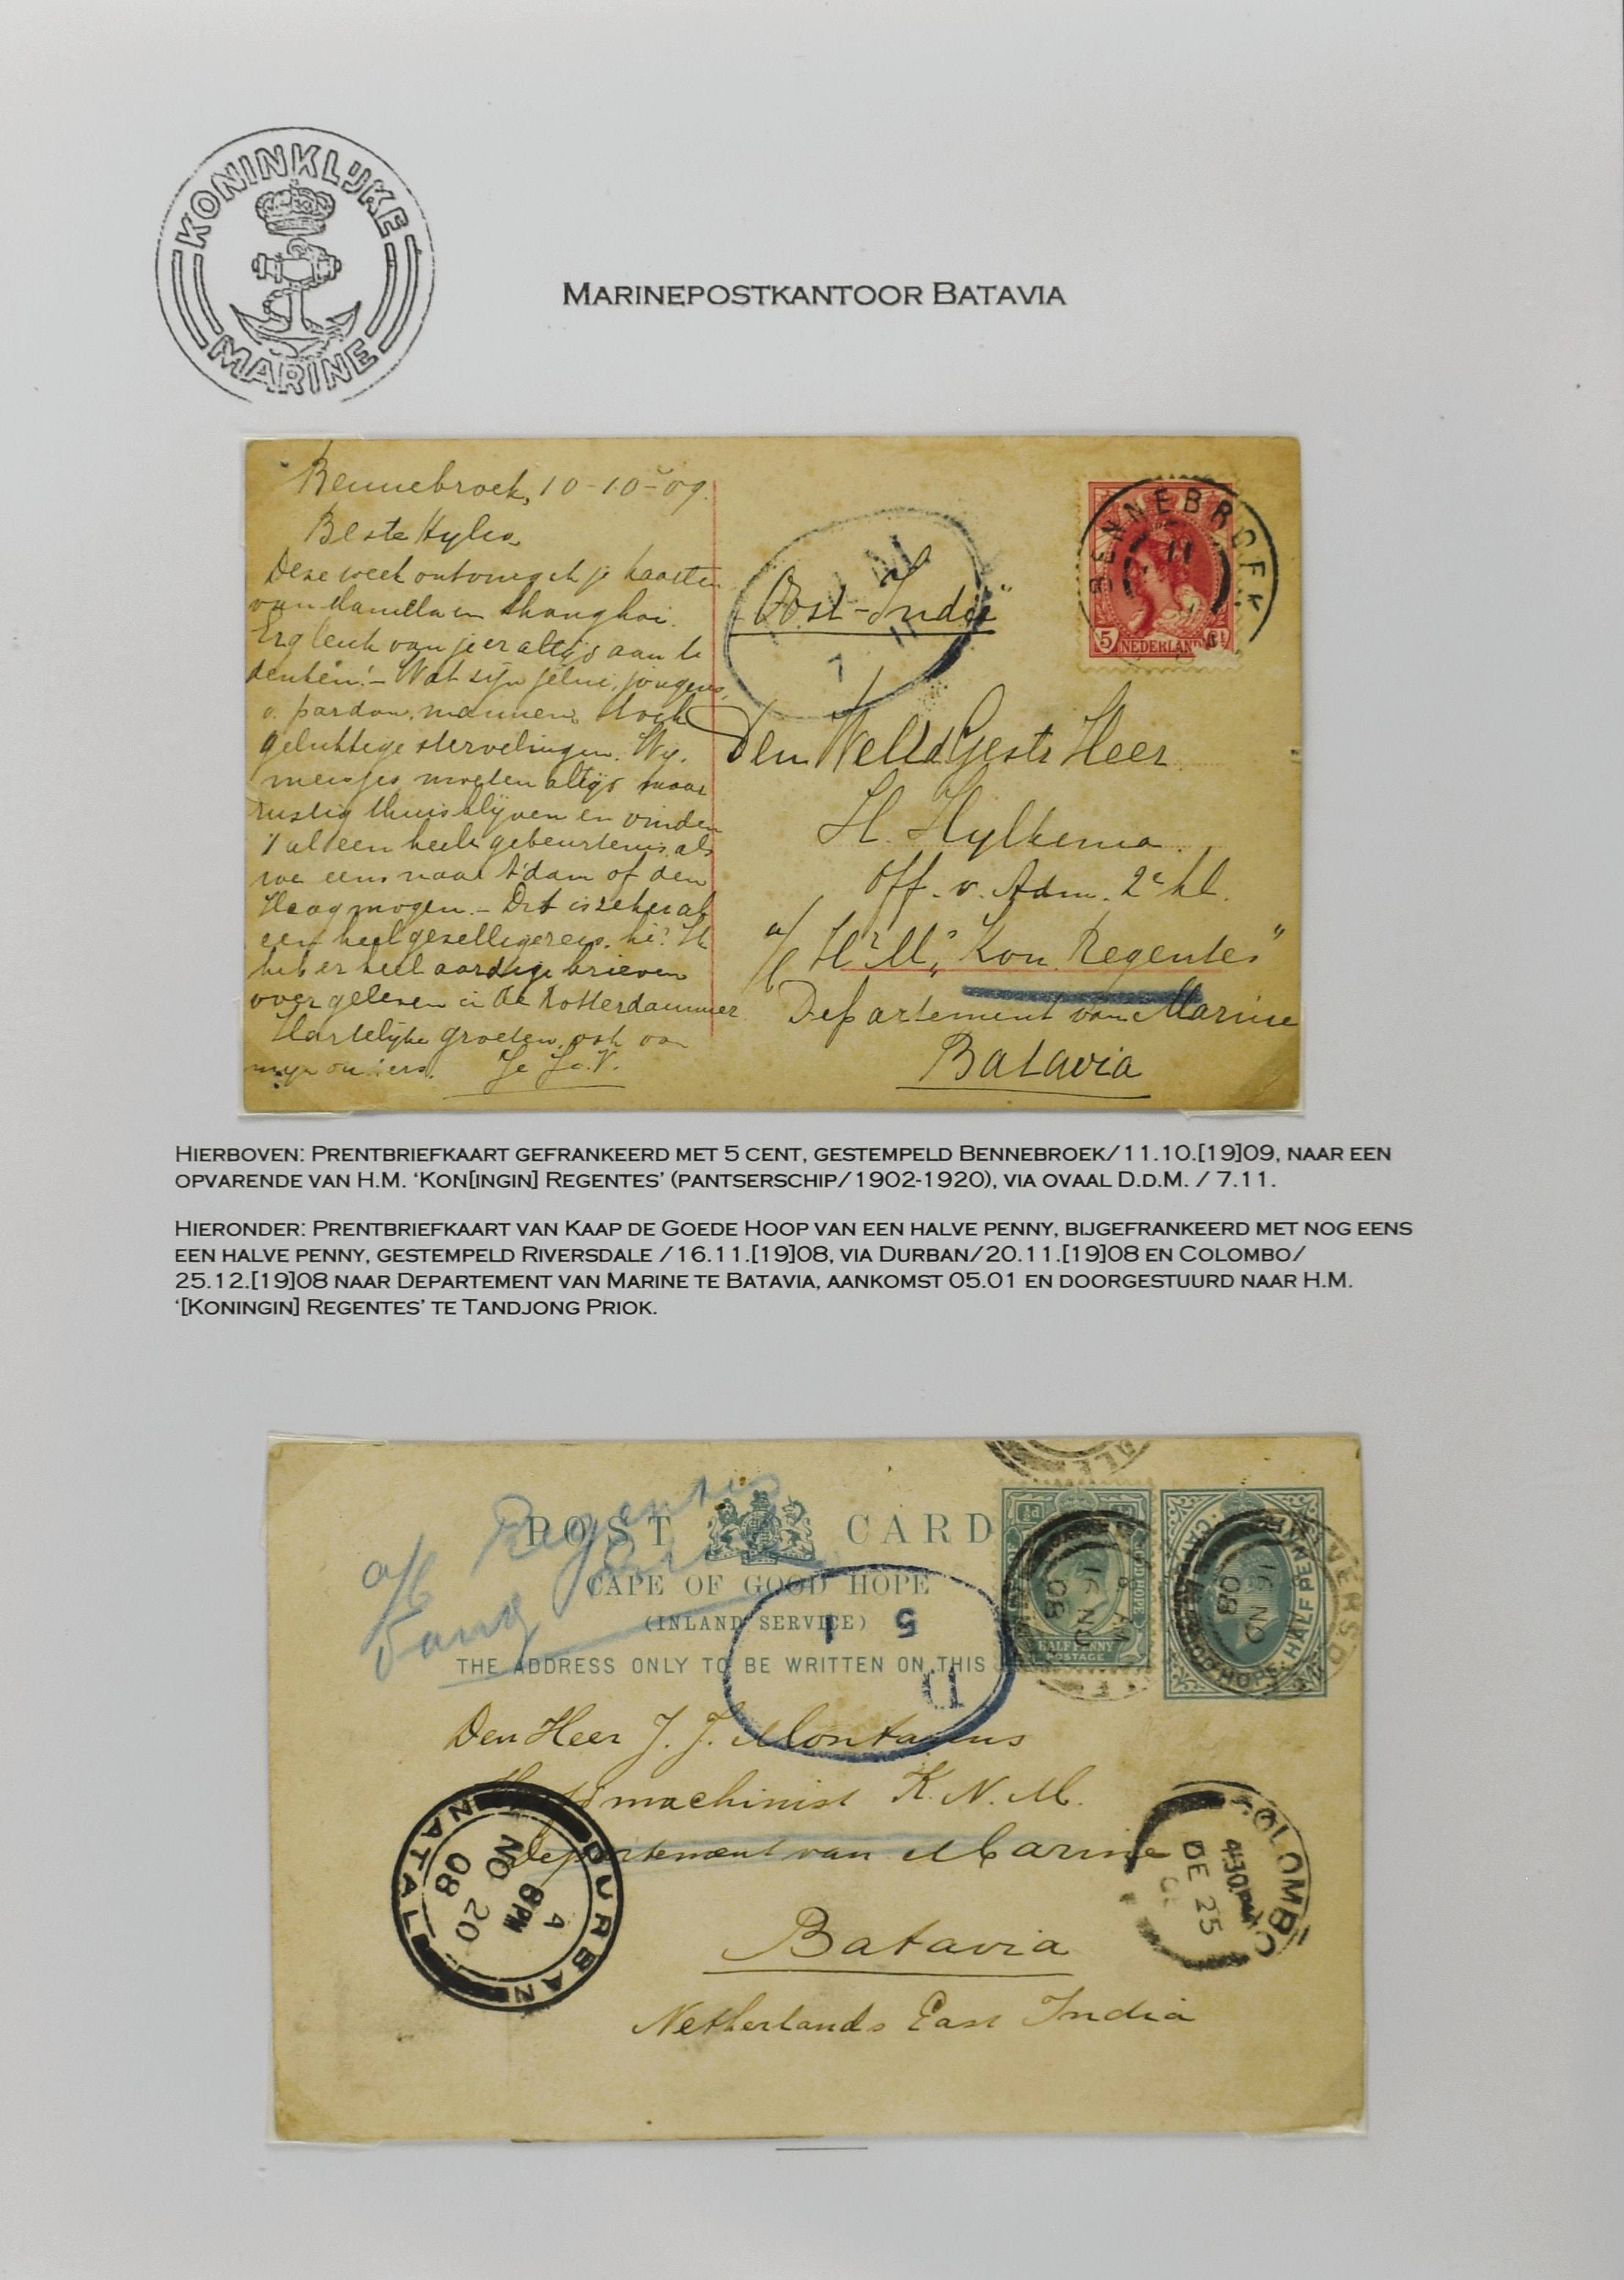 KONINKLIJKE
MARINE
MARINEPOSTKANTOOR BATAVIA
Bennebroek, 10-10-09.
Beste Hylko,
Deze week ontving ik je kaarten
van Manilla en Shanghai.
Erg leuk van je er altijd aan te
denken! - Wat zijn jelui, jongens,
o pardon, mannen, toch
gelukkige stervelingen. Wij,
meisjes moeten altijd maar
rustig thuis blijven en vinden
't al een heele gebeurtenis, als
we eens naar A'dam of den
Haag mogen. - Dit is zeker al
een heel gezellige reis, hè? Ik
heb er heel aardige brieven
over gelezen in de Rotterdammer.
Hartelijke groeten, ook van
mijn ouders. Je Jo. V.
BENNEBROEK
11
5 NEDERLAND ct
"Oost-Indië"
M
7 11
Den WelEdGestr Heer
H. Hylkema.
Off. v. Adm. 2e kl.
a/b Hr Ms "Kon. Regentes"
Departement van Marine
Batavia
HIERBOVEN: PRENTBRIEFKAART GEFRANKEERD MET 5 CENT, GESTEMPELD BENNEBROEK/11.10.[19]09, NAAR EEN
OPVARENDE VAN H.M. 'KON[INGIN] REGENTES' (PANTSERSCHIP/1902-1920), VIA OVAAL D.D.M. / 7.11.
HIERONDER: PRENTBRIEFKAART VAN KAAP DE GOEDE HOOP VAN EEN HALVE PENNY, BIJGEFRANKEERD MET NOG EENS
EEN HALVE PENNY, GESTEMPELD RIVERSDALE /16.11.[19]08, VIA DURBAN/20.11.[19]08 EN COLOMBO/
25.12.[19]08 NAAR DEPARTEMENT VAN MARINE TE BATAVIA, AANKOMST 05.01 EN DOORGESTUURD NAAR H.M.
'[KONINGIN] REGENTES' TE TANDJONG PRIOK.
a/b Regentes
Tang
POST CARD
CAPE OF GOOD HOPE
(INLAND SERVICE)
THE ADDRESS ONLY TO BE WRITTEN ON THIS
5 1
D
½d ½d
HALF PENNY
POSTAGE
16 NO
08
CAPE OF GOOD HOPE. HALF PENNY
16 NO
08
Den Heer J. J. Montanus
Hoofdmachinist K. N. M.
Departement van Marine
Batavia
Netherlands East India
DURBAN
A
8 PM
NO 20
08
NATAL
COLOMBO
4·30 PM
DE 25